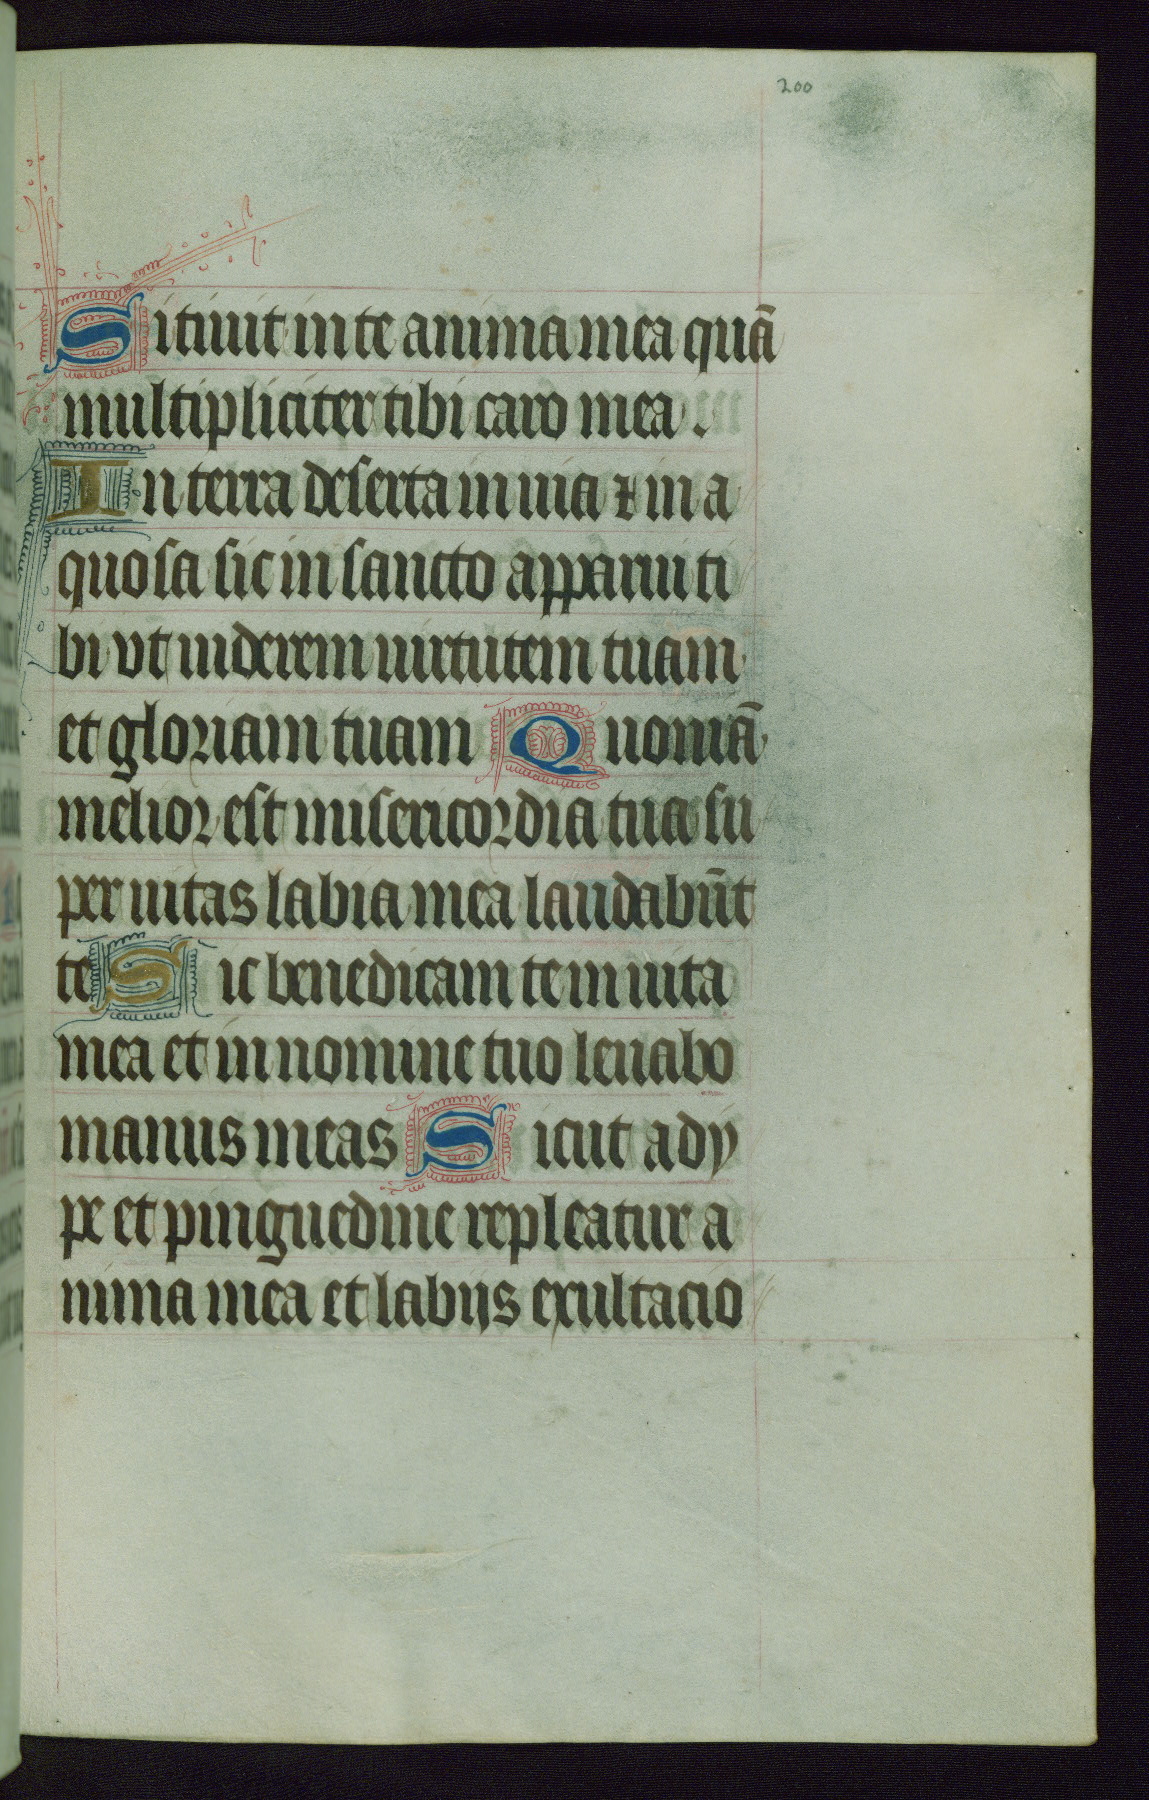 200
Sitiuit in te anima mea quā
multipliciter tibi caro mea .
In terra deserta inuia ⁊ in a
quosa sic in sancto apparui ti
bi vt uiderem uirtutem tuam
et gloriam tuam Quoniā
melior est misericordia tua su
per uitas labia mea laudabūt
te Sic benedicam te in uita
mea et in nomine tuo leuabo
manus meas Sicut ady
pe et pinguedine repleatur a
nima mea et labijs exultacio